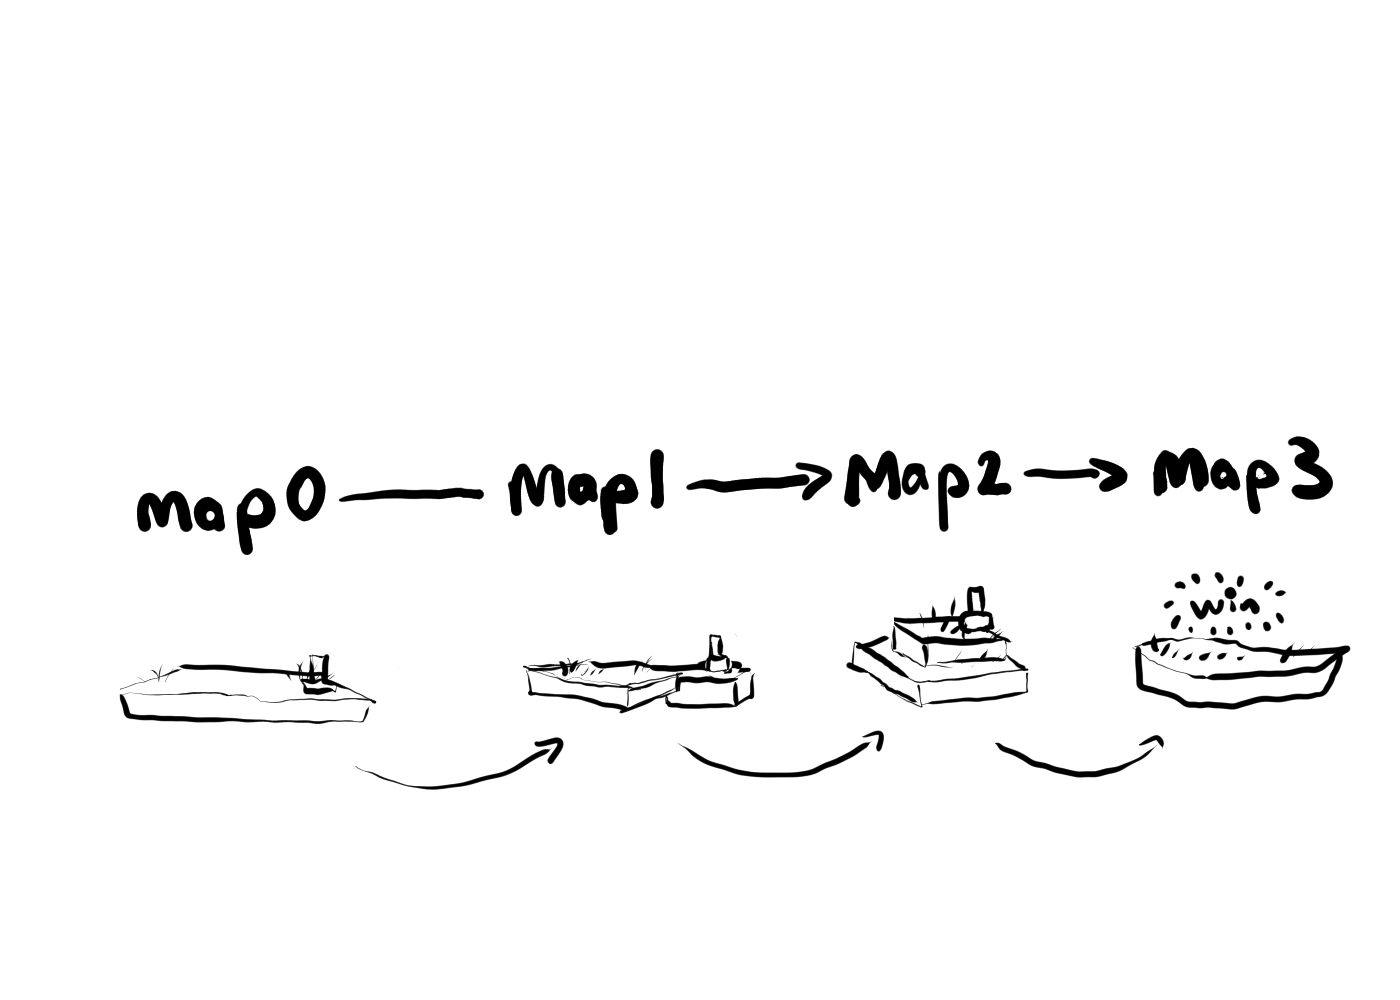 map0 Map1 Map2 Map3
win